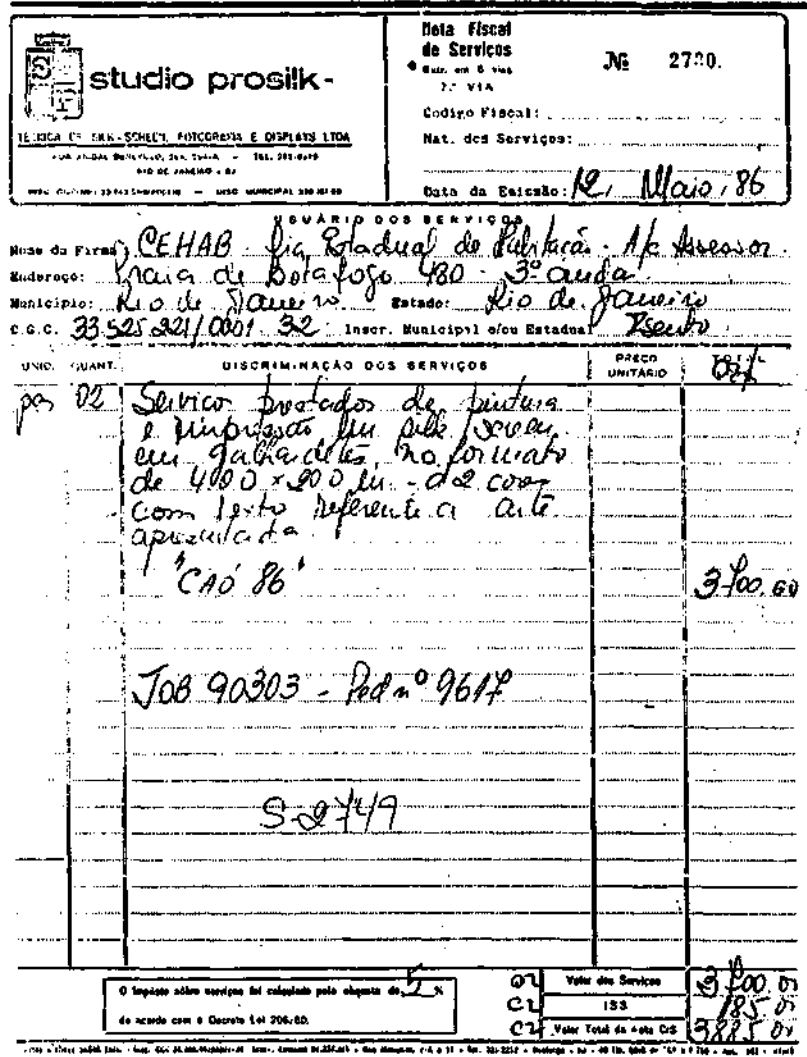 studio prosilk-
TÉCNICA DE SILK-SCREEN, FOTOGRAFIA E DISPLAYS LTDA
RIO DE JANEIRO - RJ
Nota Fiscal
de Serviços
2.ª VIA
Nº 2720.
Codigo Fiscal:
Nat. dos Serviços:
Data da Emissão: 12, Maio, 86
USUÁRIO DOS SERVIÇOS
Nome da Firma: CEHAB - Cia Estadual de Habitação - A/c Assessor.
Endereço: Praia de Botafogo 480 - 3º andar
Município: Rio de Janeiro Estado: Rio de Janeiro
C.G.C. 33.525.221/0001-32 Inscr. Municipal e/ou Estadual Isento
UNID. QUANT. DISCRIMINAÇÃO DOS SERVIÇOS PREÇO UNITÁRIO TOTAL
02 Serviços prestados de pintura
e impressão em silk screen
em galhardetes no formato
de 4000 x 200 - a 2 cores
com texto referente a arte
apresentada
"CAÓ 86" 3700,00
JOB 90303 - Ped nº 9617
S-2749
O Impôsto sôbre serviços foi calculado pela alíquota de 5 %
de acordo com o Decreto Lei 206/80.
Valor dos Serviços 3700,00
ISS 185,00
Valor Total da Nota Cr$ 3885,00